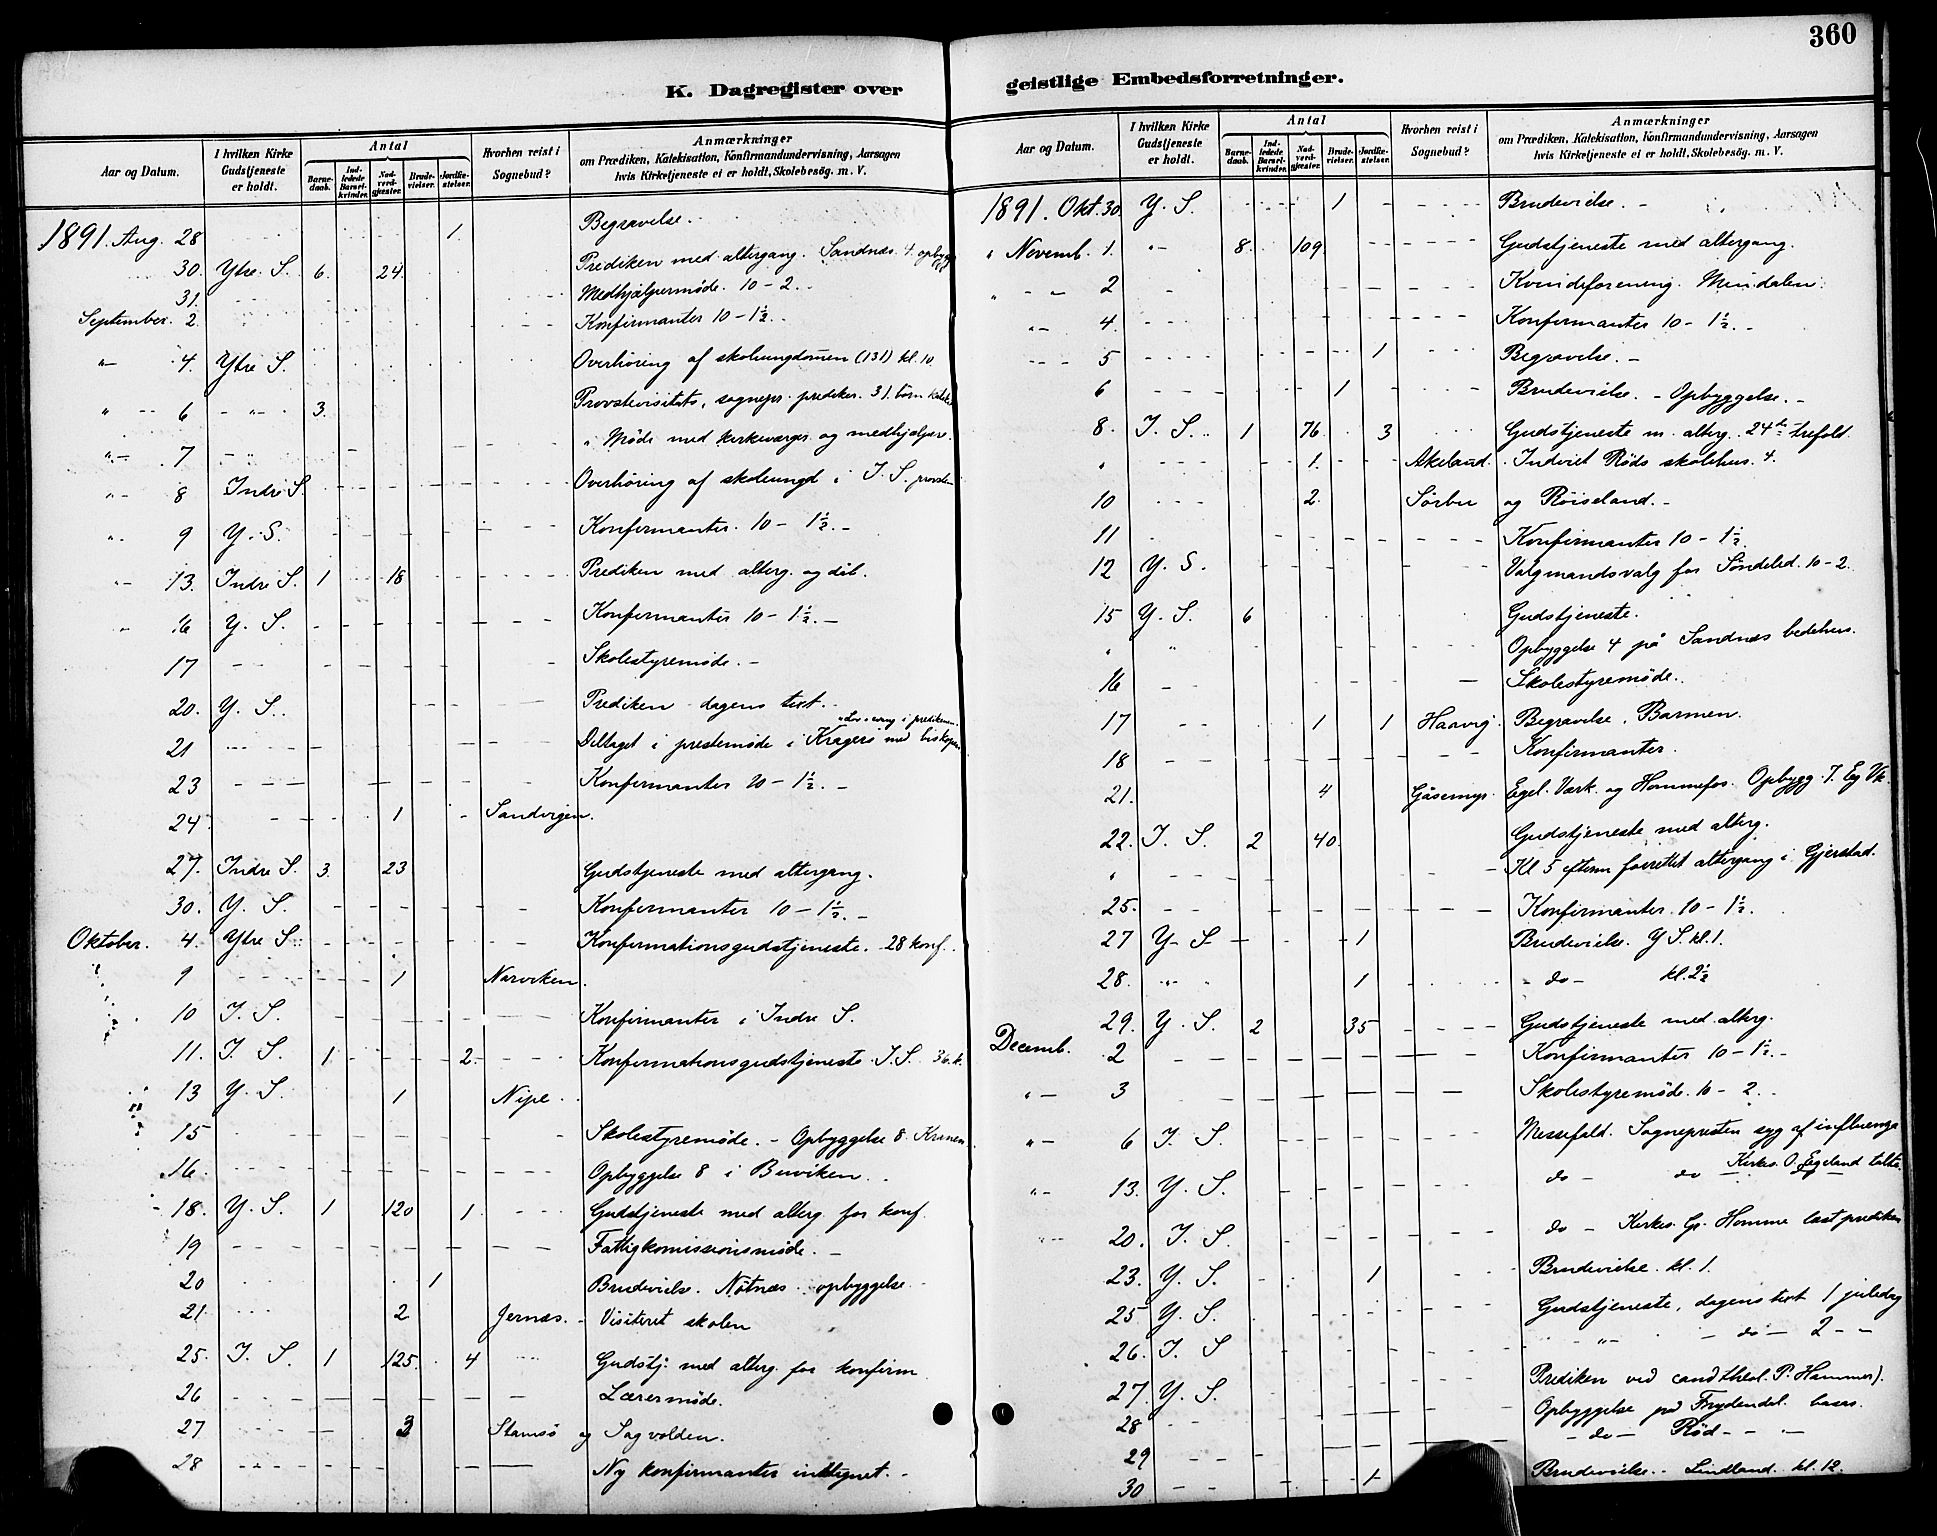 360
K. Dagregister over
geistlige Embedsforretninger.
Aar og Datum. I hvilken Kirke Gudstjeneste er holdt. Antal Barnedaab. Indledede Barselkvinder. Nadverdgjester. Brudevielser. Jordfæstelser. Hvorhen reist i Sognebud? Anmærkninger om Prædiken, Katekisation, Konfirmandundervisning, Aarsagen hvis Kirketjeneste ei er holdt, Skolebesøg. m. V.
1891. Aug. 28 1. Begravelse.
30. Ytre. S. 6. 24. Prediken med altergang. Sandnæs 4. opbygg
31. Medhjælpermøde. 10-2.
September. 2. Konfirmanter 10-1½.
"- 4. Ytre S. Overhøring af skoleungdomen (131) kl. 10.
" -- 6 - " - 3. Provstevisitats, sognepr. prediker. 31. børn
"- 7 - " Møde med kirkeværger og medhjælpere.
"- 8 Indre S. Overhøring af skoleungd i I. S.
". 9 Y. S. Konfirmanter. 10-1½.-
"- 13. Indre S. 1 18 Prediken med alterg. og dåb.
" 16 Y. S. Konfirmanter 10-1½.-
17 Skolestyremøde.-
20. Y. S. Prediken - dagens text.
21 Deltaget i prestemøde i Kragerø med biskopen
23 Konfirmanter 10-1½.-
24 1 Sandvigen.
27. Indre S. 3. 23 Gudstjeneste med altergang.
30. Y. S. Konfirmanter 10-1½.-
Oktober. 4. Ytre S. Konfirmationsgudstjeneste. 28 konf.
" 9 1 Narviken.
" 10 I. S. Konfirmanter i Indre S.
11. I. S. 1. 2. Konfirmationsgudstjeneste I. S. 36. k.
" 13 Y. S. 1 Nipe.
15 Skolestyremøde. - Opbyggelse 8. Kranen
16. Opbyggelse 8 i Buviken.
18. Y. S. 1 120 1. Gudstjeneste med alterg. for konf.
19 Fattigkomissionsmøde. -
20 1 Brudevielse. Nøtnæs opbyggelse
21. 2 Jernæs. - Visiteret skolen
25. I. S. 1 125. 4 Gudstj. med alterg. for konfirm
26 Lærermøde.
27 3 Stamsø og Sagvolden.
28 Ny konfirmanter indtegnet.-
Aar og Datum. I hvilken Kirke Gudstjeneste er holdt. Antal Barnedaab. Indledede Barselkvinder. Nadverdgjester. Brudevielser. Jordfæstelser. Hvorhen reist i Sognebud? Anmærkninger om Prædiken, Katekisation, Konfirmandundervisning, Aarsagen hvis Kirketjeneste ei er holdt, Skolebesøg. m. V.
1891. Okt. 30. Y. S. 1 Brudevielse. -
" Novemb. 1. "- 8. 109. Gudstjeneste med altergang.
" - " 2 Kvindeforening. Mindalen.
"- 4. Konfirmanter 10-1½.-
5 1 Begravelse.-
6 1 Brudevielse. - Opbyggelse.-
8. I. S. 1 76. 3 Gudstjeneste m. alterg. 24de trefold.
" 1. Akeland. Indviet Røds skolehus. 4.
10 2. Sørbu og Røiseland.-
11 Konfirmanter 10-1½.
12 Y. S. Valgmandsvalg for Søndeled. 10-2.
15 Y. S. 6 Gudstjeneste.
" " Opbyggelse 4 på Sandnæs bedehus.
16 Skolestyremøde.
17 1 1 Haavig. Begravelse. Barmen.
18 Konfirmanter.
21. 4 Gåsemyr. Egel. Værk. og Hommefos. Opbygg. 7. Eg Vk.
22. I. S. 2 40. Gudstjeneste med alterg.
" - Kl 5 efterm forrettet altergang i Gjerstad.
25. Konfirmanter. 10-1½.
27 Y. S. 1 Brudevielse. Y S. kl. 1.
28. " 1 - do - kl. 2½
29. Y. S. 2 35 Gudstjeneste med alterg.
Decemb. 2 Konfirmanter 10-1½.-
"- 3 Skolestyremøde. 10-2.
"- 6 I. S. Messefald. Sognepresten syg af influenza
"- 13. Y. S. do - do Kirkes. O. Egeland talte.
20. I. S. do - Kirkes. Gr. Homme læst prediken
23. Y. S. 1 Brudevielse. kl. 1.
25 Y. S. Gudstjeneste, dagens text 1 juledag
26. I. S - " - - do - 2 - -
27. Y. S. Prediken ved cand theol. P. Hammer).
28 Opbyggelse på Frydendal.
29 - do - Rød - -
30 1 Brudevielse.- Lindland. kl. 12.